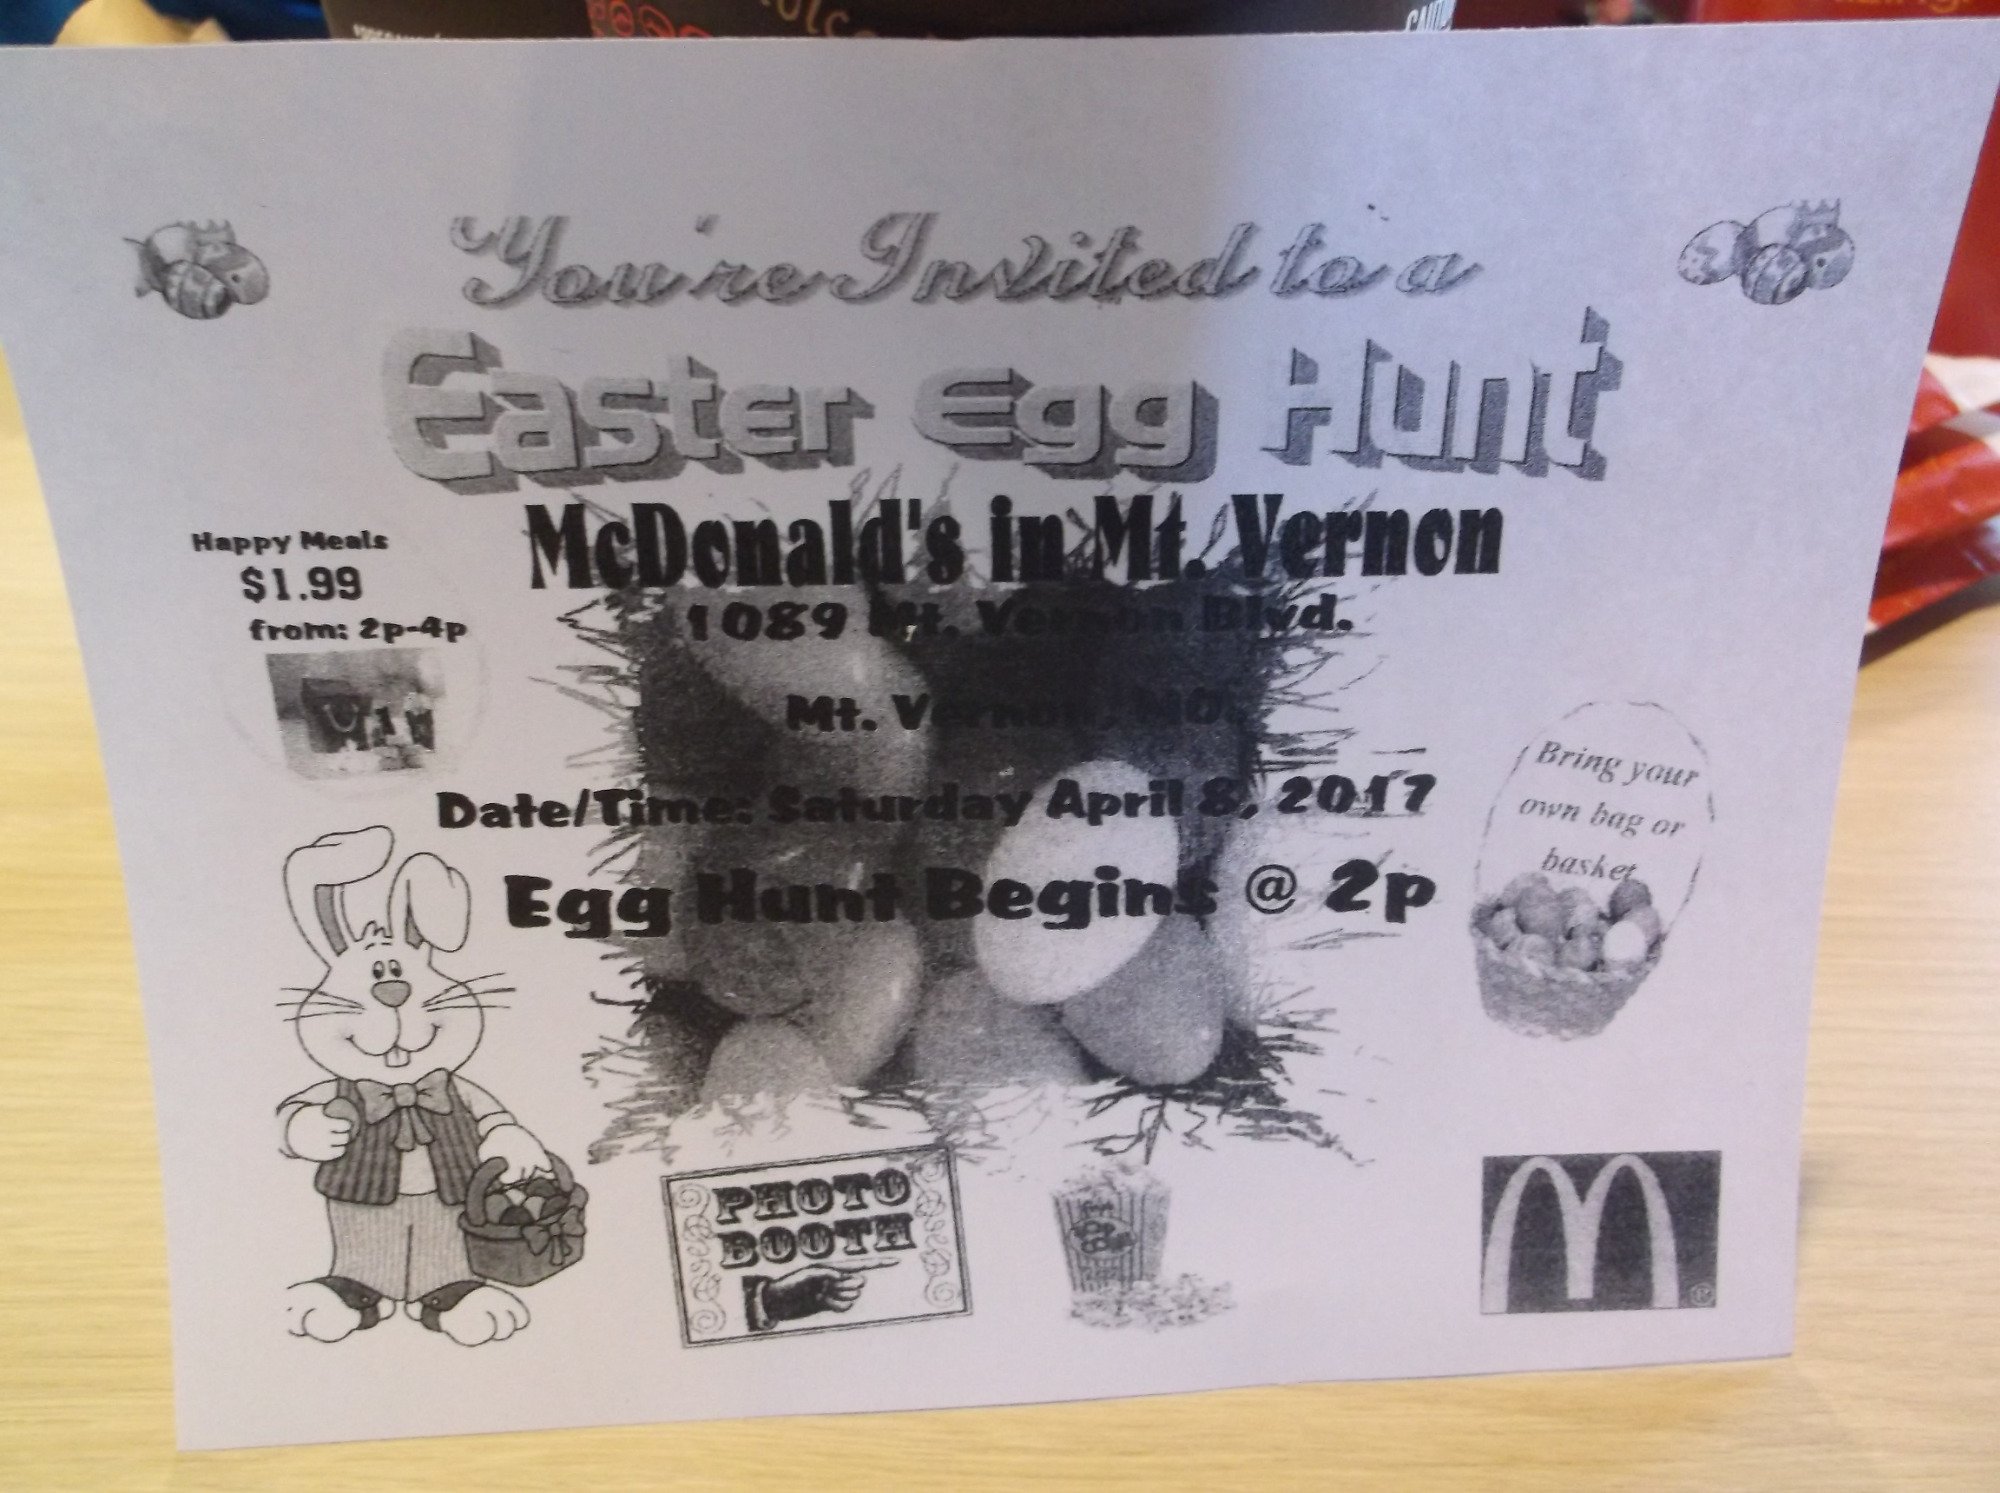 You're Invited to a
Easter Egg Hunt
McDonald's in Mt. Vernon
1089 Mt. Vernon Blvd.
Mt. Vernon, MO.
Date/Time: Saturday April 8, 2017
Egg Hunt Begins @ 2p
Happy Meals
$1.99
from: 2p-4p
Bring your
own bag or
basket
PHOTO
BOOTH